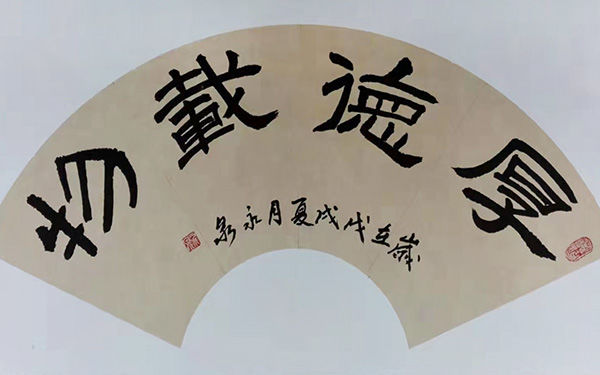 厚德載物
歲在戊戌夏月永泉